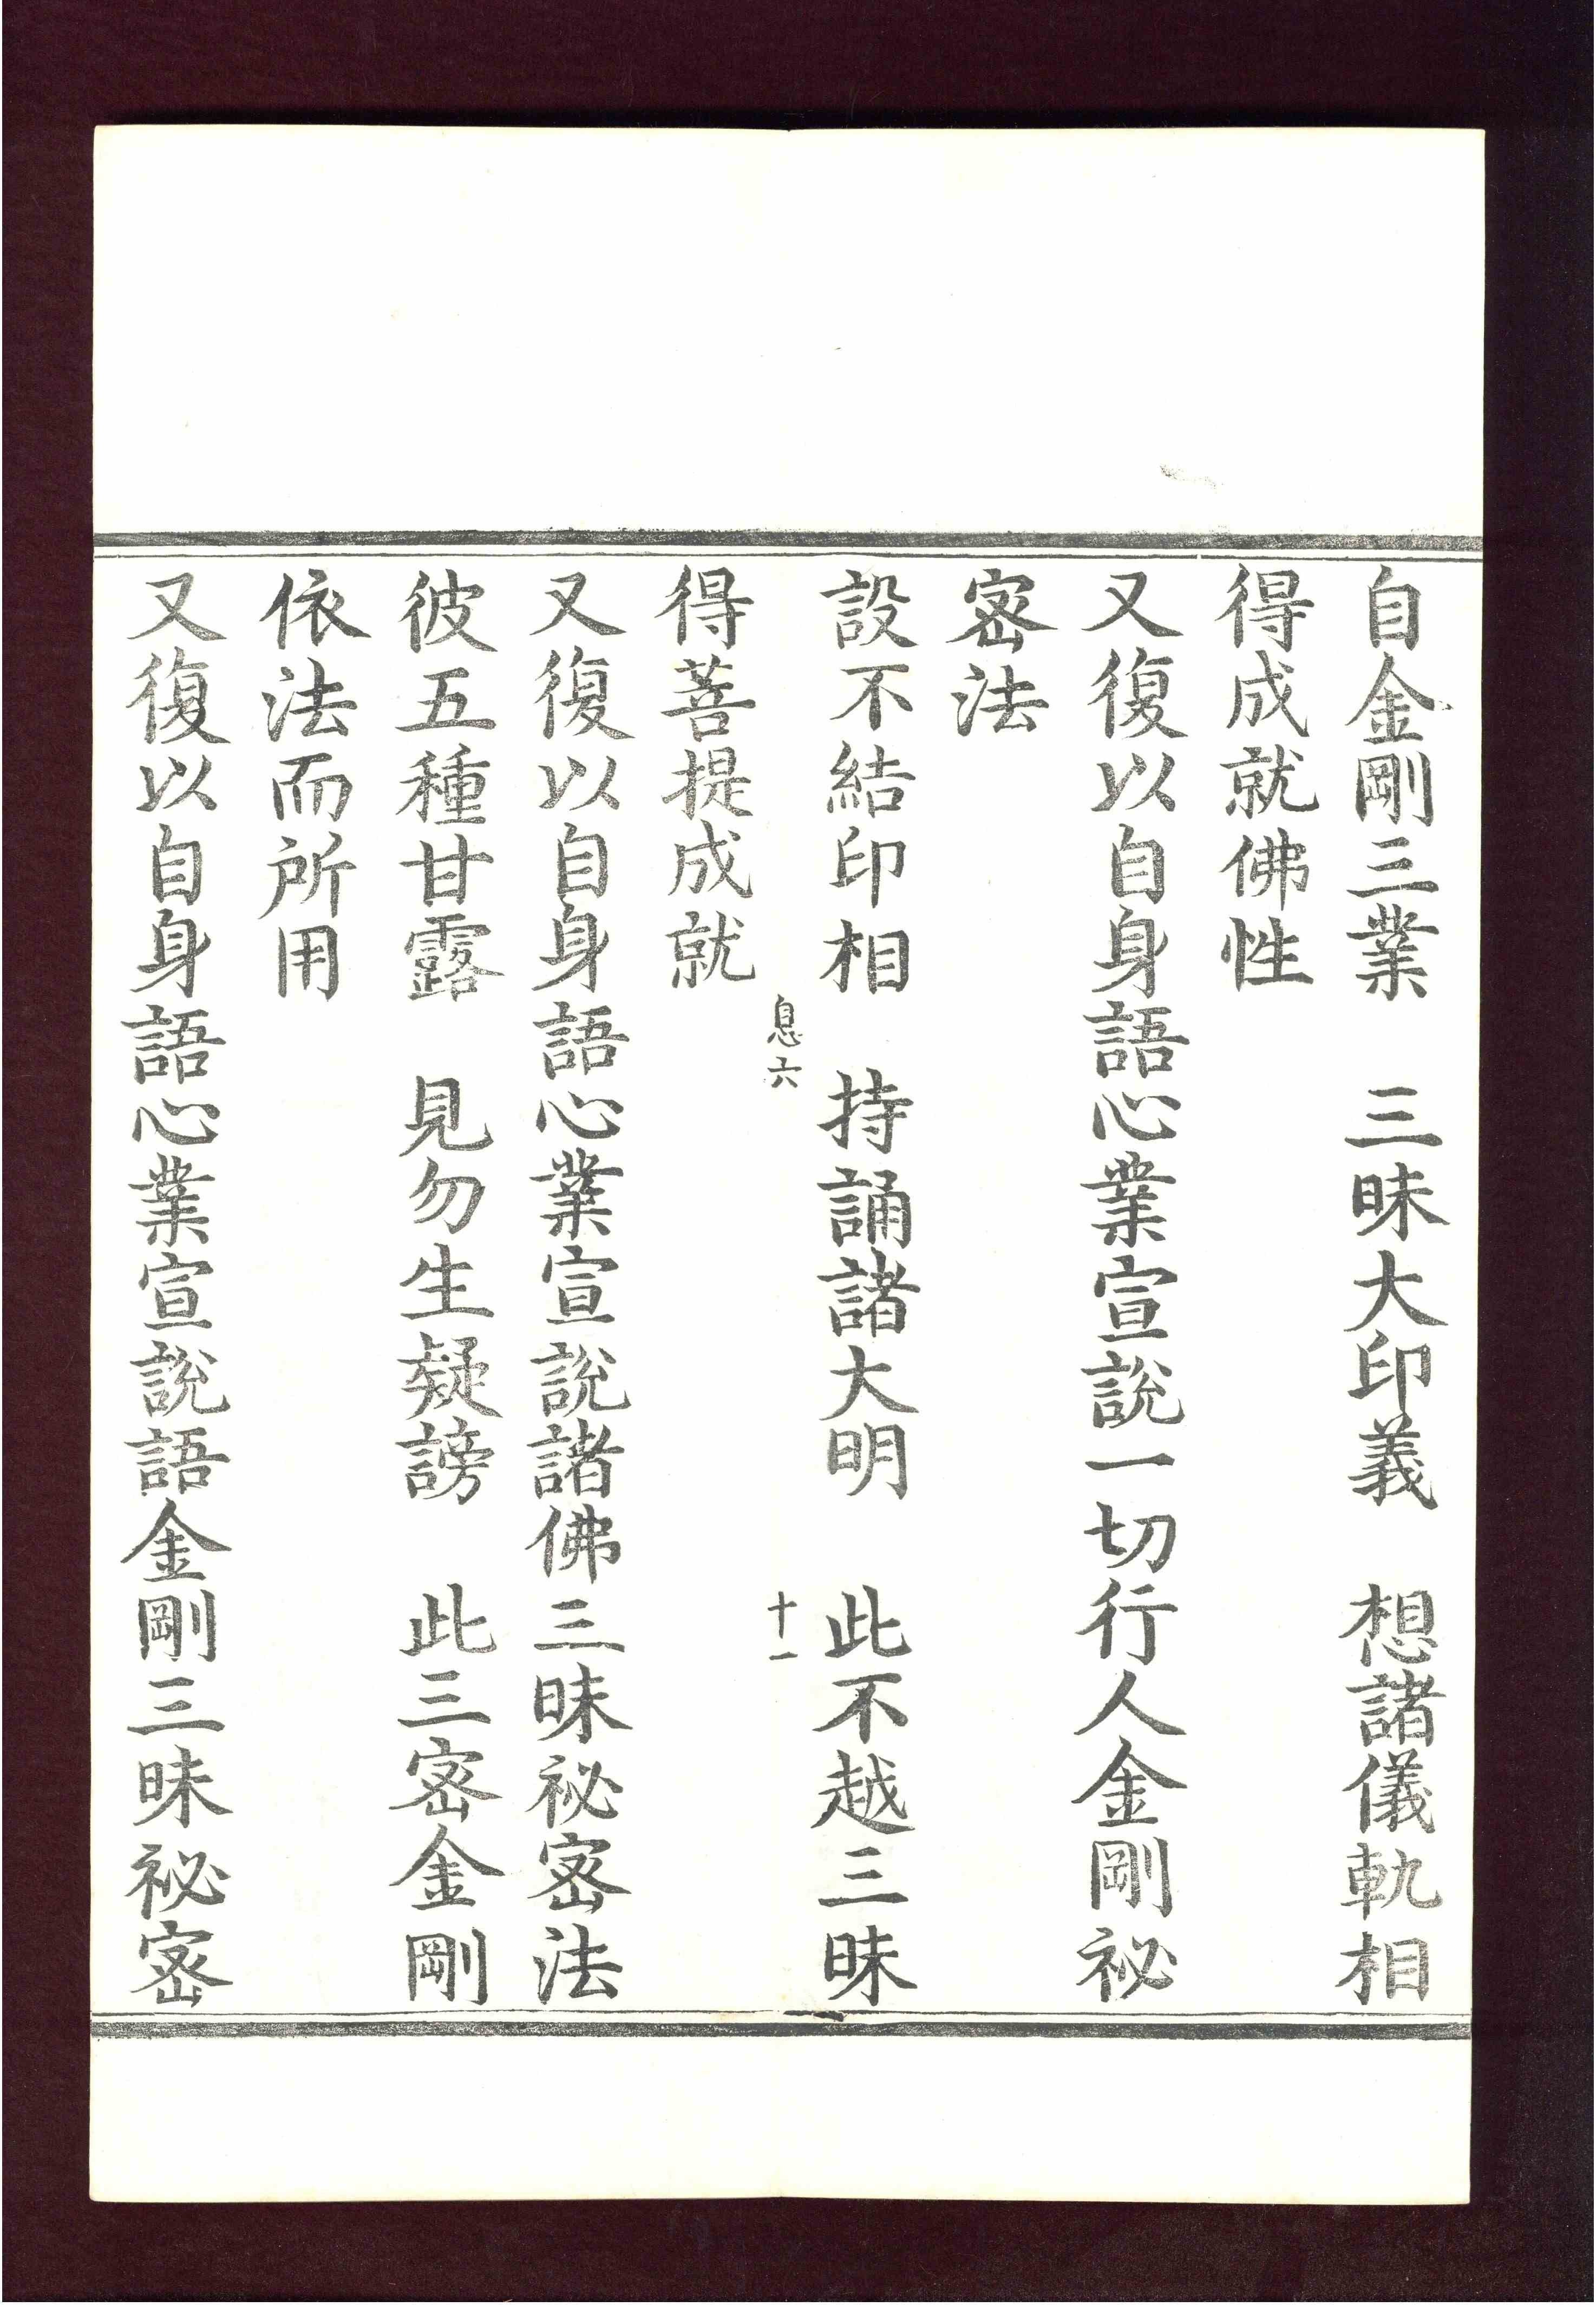 自金剛三業　三昧大印義　想諸儀軌相
得成就佛性
又復以自身語心業宣說一切行人金剛祕
密法
設不結印相　持誦諸大明　此不越三昧
息六　十一
得菩提成就
又復以自身語心業宣說諸佛三昧祕密法
彼五種甘露　見勿生疑謗　此三密金剛
依法而所用
又復以自身語心業宣說語金剛三昧祕密